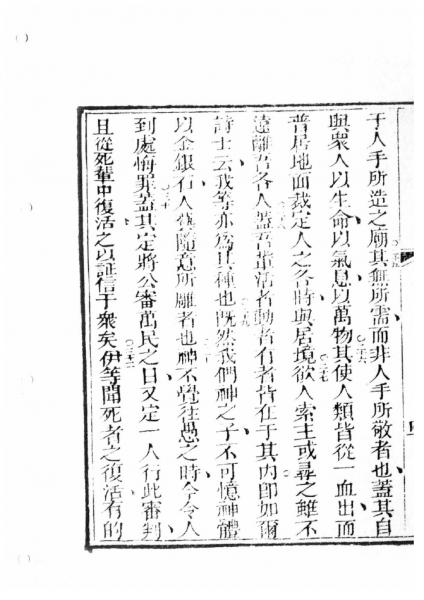 于人手所造之廟其無所需而非人手所敬者也蓋其自
與衆人以生命以氣息以萬物其使人類皆從一血出而
普居地面裁定人之各時與居境欲人索主或尋之雖不
遠離吾各人蓋吾輩活者動者有者皆在于其內即如爾
詩士云我等亦為其種也既然我們神之子不可憶神體
以金銀行人獲隨意所雕者也神不覺往愚之時今令人
到處悔罪蓋其定將公審萬民之日又定一人行此審判
且從死輩中復活之以証信于衆矣伊等聞死者之復活有的